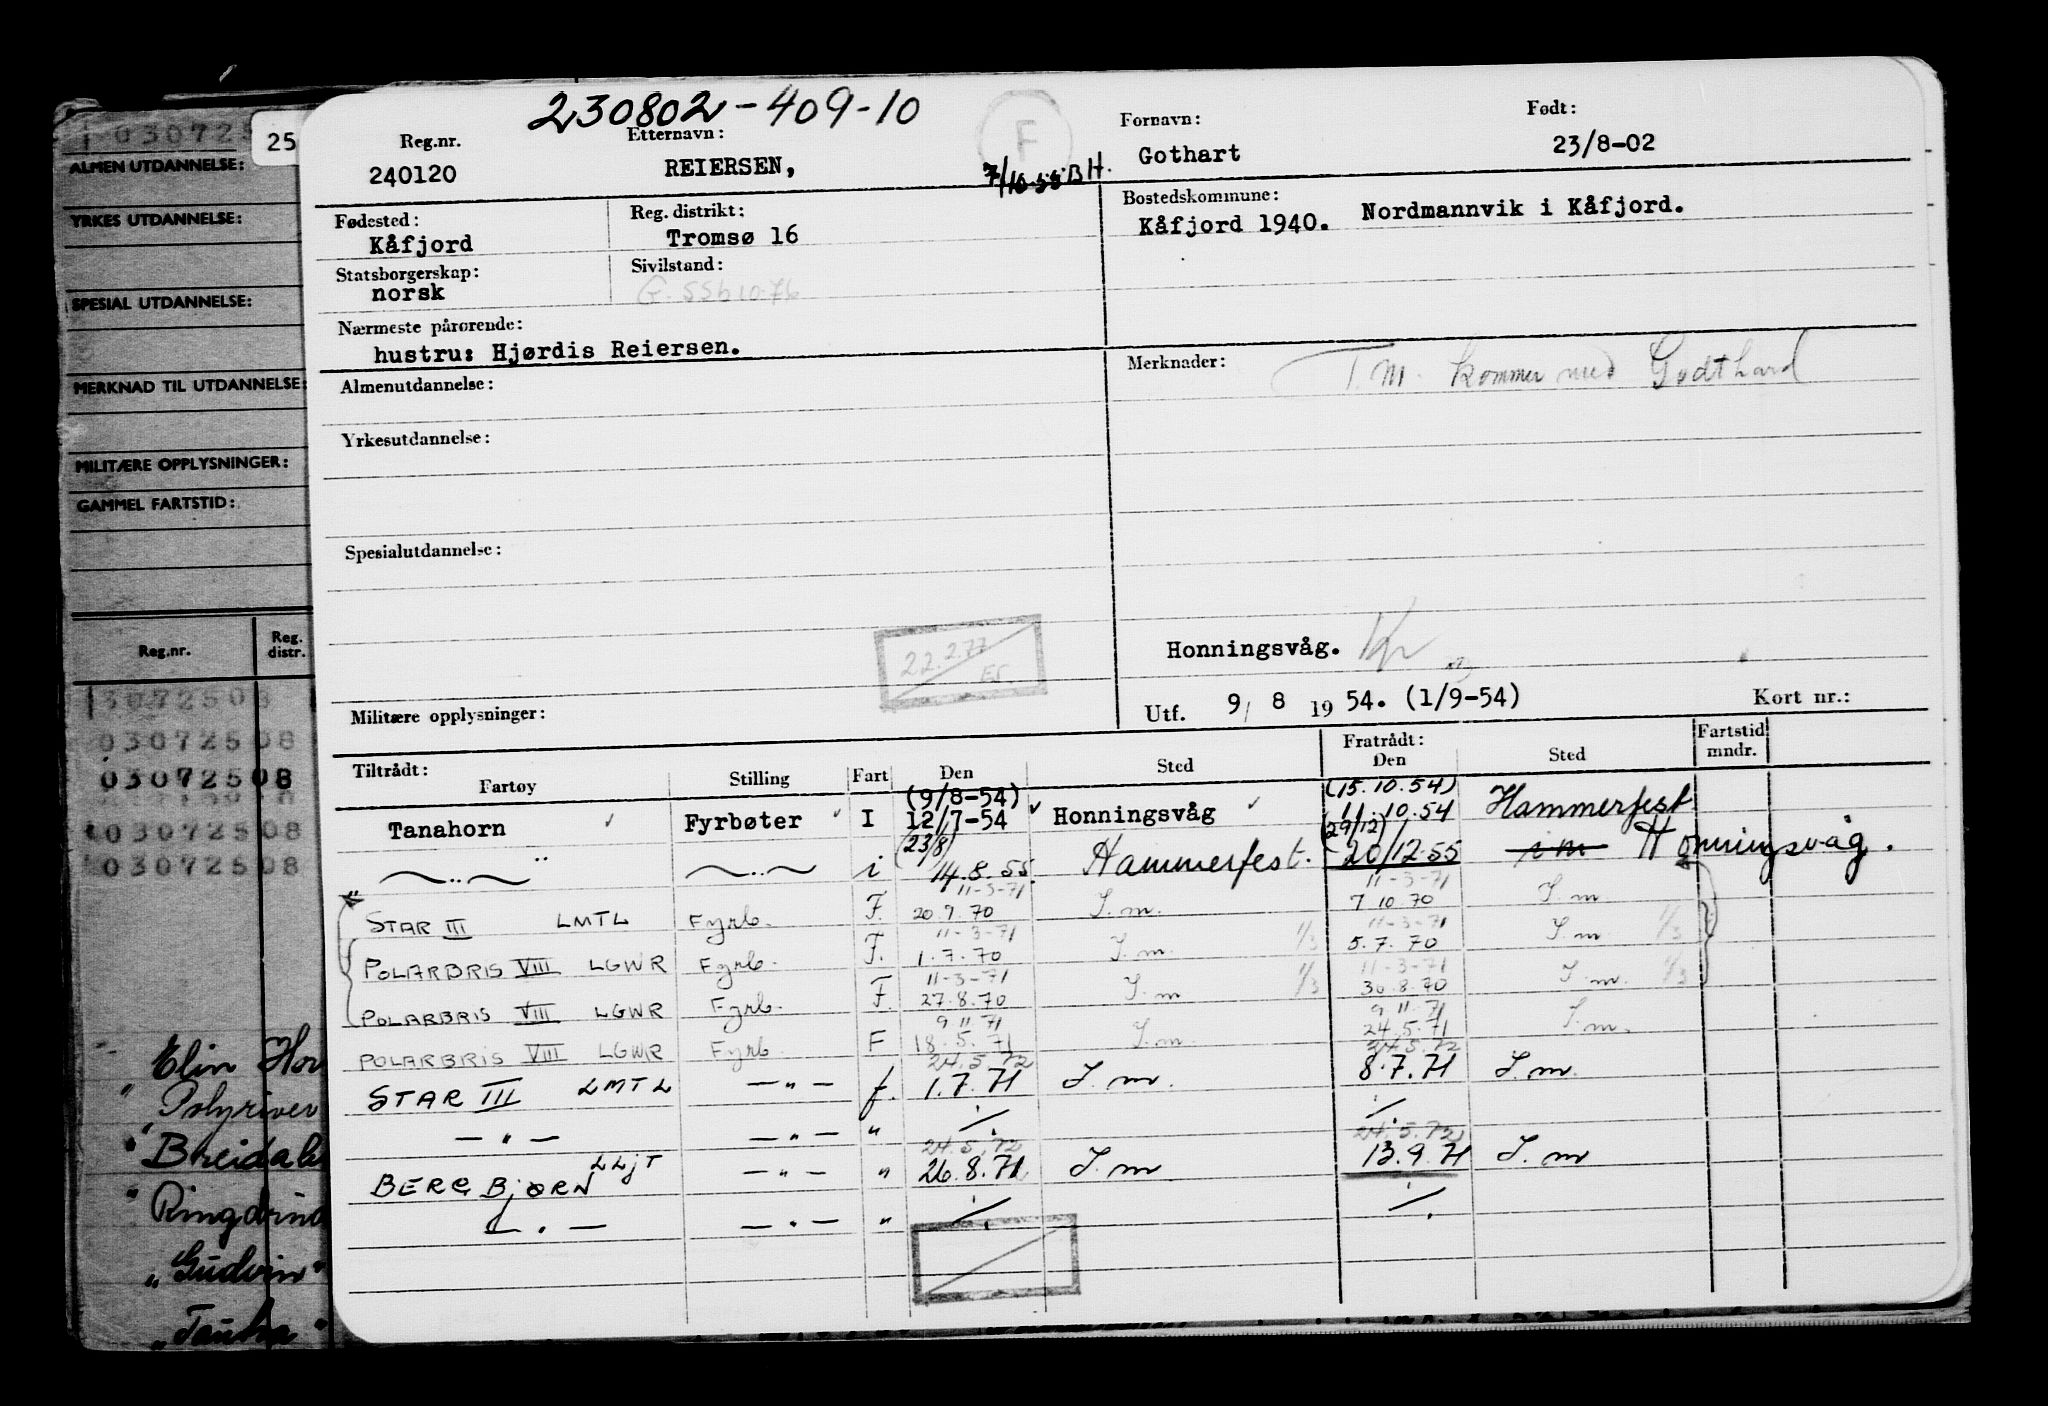 030725
25
ALMEN UTDANNELSE:
YRKES UTDANNELSE:
SPESIAL UTDANNELSE:
MERKNAD TIL UTDANNELSE:
MILITÆRE OPPLYSNINGER:
GAMMEL FARTSTID:
Reg.nr. Reg. distr.
3072508
03072508
03072508
03072508
03072508
Elin Hor
" Polyriver
" Breidal
" Ringdrind
" Gudvin "
" Tauka "
230802-409-10
F
Reg.nr. Etternavn: Fornavn: Født:
240120 REIERSEN, 7/10-55 BH. Gothart 23/8-02
Fødested: Reg. distrikt: Bostedskommune:
Kåfjord Tromsø 16 Kåfjord 1940. Nordmannvik i Kåfjord.
Statsborgerskap: Sivilstand:
norsk G. SSB 10.76
Nærmeste pårørende:
hustru: Hjørdis Reiersen.
Almenutdannelse: Merknader: T.M. kommer med Godthard
Yrkesutdannelse:
Spesialutdannelse:
22.2.77
Honningsvåg.
Militære opplysninger: Utf. 9/ 8 19 54. (1/9-54) Kort nr.:
Tiltrådt: Fratrådt: Fartstid
Fartøy Stilling Fart Den Sted Den Sted mndr.
(9/8-54) (15.10.54)
Tanahorn Fyrbøter I 12/7-54 Honningsvåg 11.10.54 Hammerfest
(23/8) (29/12)
— " — — " — i 14.8.55. Hammerfest. 20/12.55 i m Honningsvåg.
11-3-71 11-3-71
STAR III LMTL Fyrb. F. 20.9.70 I.m. 7 10.70 I.m
11-3-71 11-3-71
POLARBRIS VIII LGWR Fyrb. F. 1.7.70 I.m 1/3 5.7.70 I.m 1/3
11-3-71 11-3-71
POLARBRIS VIII LGWR Fyrb. F. 27.8.70 I.m 1/3 30.8.70 I.m. 1/3
9 11.71 9 11.71
POLARBRIS VIII LGWR Fyrb. F 18.5.71 I.m. 24.5.71 I.m.
24.5.72 24.5.72
STAR III LMTL — " — f. 1.7.71 I.m. 8.7.71 I.m.
— " — — " — " ./. ./.
24.5.72 24.5.72
BERG BJØRN LLJT — " — " 26.8.71 I.m 13.9.71 I.m
— " — — " — " ./. ./.